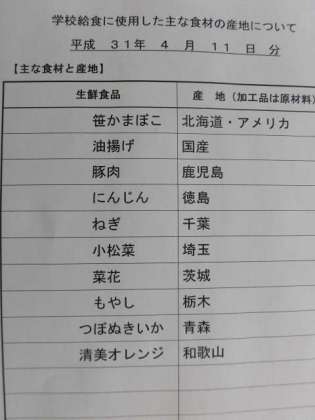 学校給食に使用した主な食材の産地について
平成 31年 4 月 11 日 分
【主な食材と産地】
生鮮食品 産 地（加工品は原材料）
笹かまぼこ 北海道・アメリカ
油揚げ 国産
豚肉 鹿児島
にんじん 徳島
ねぎ 千葉
小松菜 埼玉
菜花 茨城
もやし 栃木
つぼぬきいか 青森
清美オレンジ 和歌山